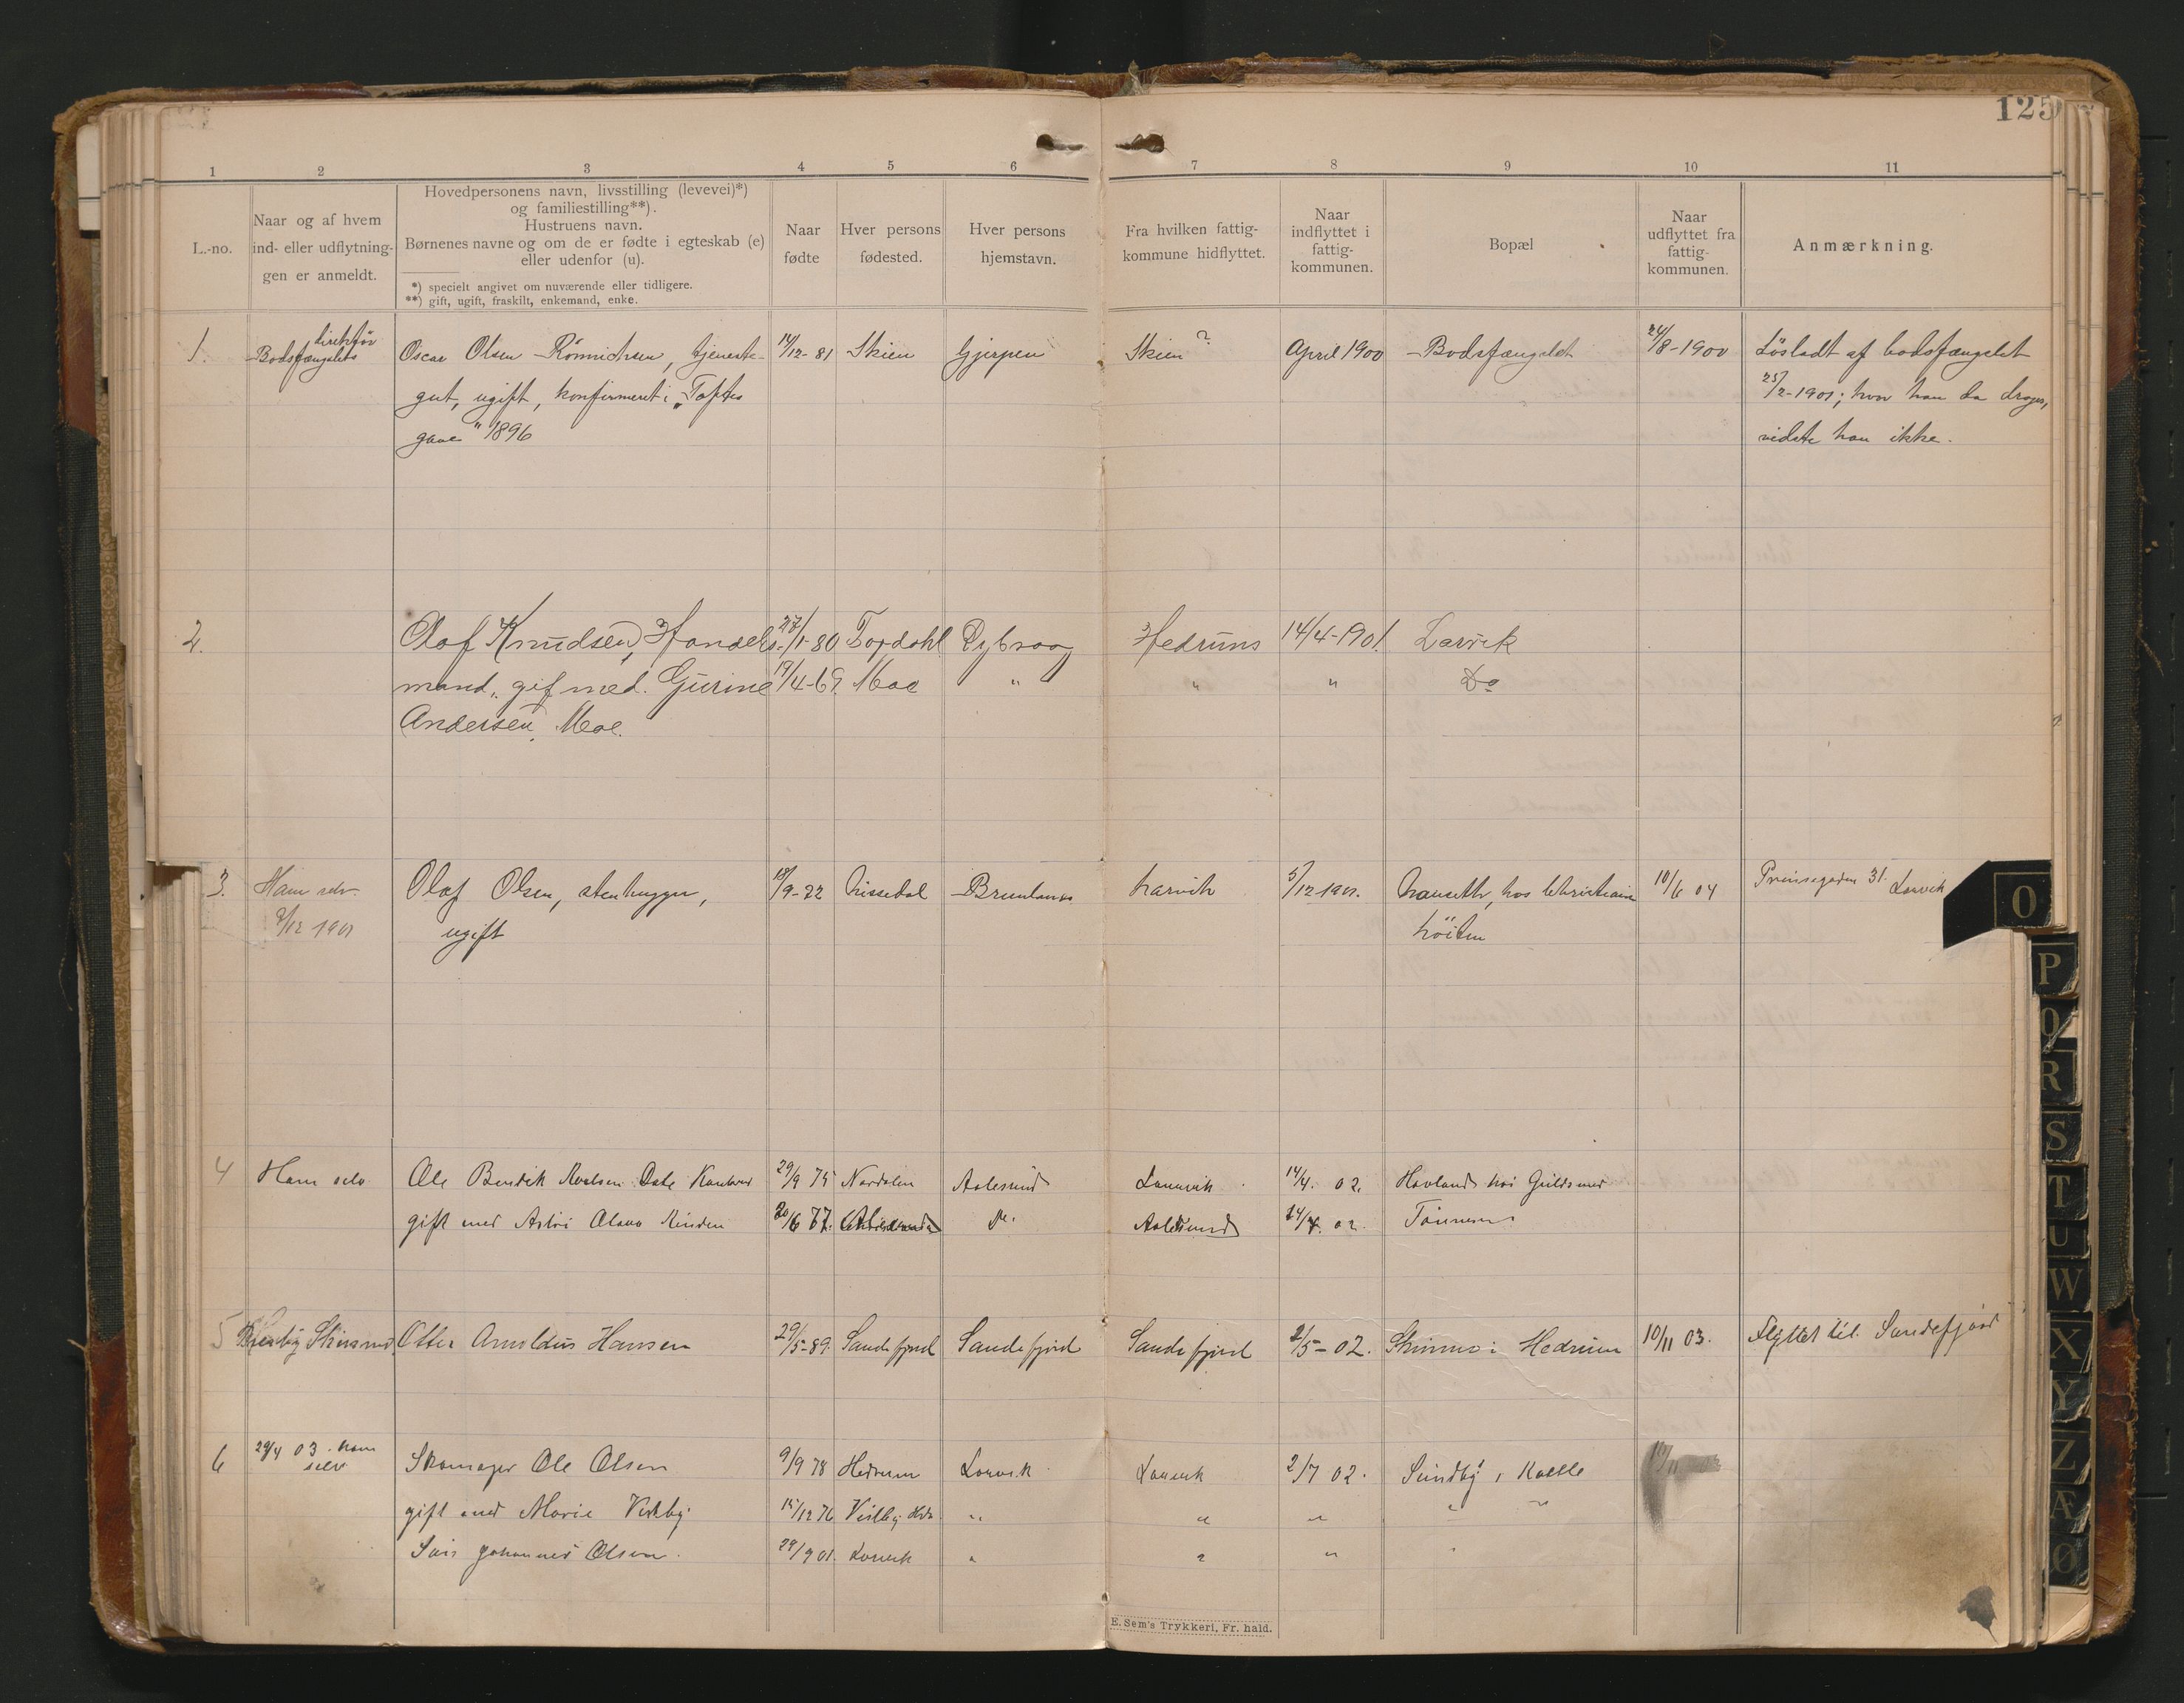 125
1 2 3 4 5 6 7 8 9 10 11
L.-no.
Naar og af hvem
ind- eller udflytnin-
gen er anmeldt.
Hovedpersonens navn, livsstilling (levevei)*)
og familiestilling**).
Hustruens navn.
Børnenes navne og om de er fødte i egteskab (e)
eller udenfor (u).
*) specielt angivet om nuværende eller tidligere.
**) gift, ugift, fraskilt, enkemand, enke.
Naar
fødte
Hver persons
fødested.
Hver persons
hjemstavn.
Fra hvilken fattig-
kommune hidflyttet.
Naar
indflyttet i
fattig-
kommunen.
Bopæl
Naar
udflyttet fra
fattig-
kommunen.
Anmærkning.
direktör
1. Bodsfængslets Oscar Olsen Römnichsen, tjeneste- 14/12-81 Skien Gjerpen Skien ? April 1900 Bodsfængslet 24/8-1900 Lösladt af bodsfængslet
gut, ugift, konfirmert i „Toftes 25/2-1901; hvor han da drager,
gave" 1896 vidste han ikke.
2. Olaf Knudsen, Handels- 27/1-80 Topdahl Dybvaag Hedrums 14/4-1901. Larvik
mand, gif med. Gurine 17/4-69. Moe " " " Do
Andersen, Moe.
3. Ham selv. Olaf Olsen, stenhugger, 18/9-22 Lissedal Brunlanæs Larvik 5/12-1901. Nauseth, hos Christiane 10/6 04 Prinsegaden 31. Larvik
9/12 1901 ugift Löiten
4 Ham selv Ole Bendik Dale 29/9 75 Nordalen Aalesund Laurvik 14/4. 02. Hovland hos Guldsmed
gift med Astri Olava 20/6 77. Do. Aalesund 14/4. 02. Tönnesen
5 Otter Arnoldus Hansen 29/5-89. Sandefjord Sandefjord Sandefjord 2/5-02. Skinmo i Hedrum 10/11 03. Flyttet til Sandefjord
6 29/4 03. ham Skomager Ole Olsen 9/9 78 Hedrum Larvik Laurvik 2/7 02. Sundby, Kaelle
selv
gift med Marie Vestby 15/12 76 Vestby Hdr. " " " " "
Søn Johannes Olsen. 29/9 01. Larvik " " " "
E. Sem's Trykkeri, Fr. hald.
O
P
Q
R
S
T
U
W
X
Y
Z
Æ
Ø